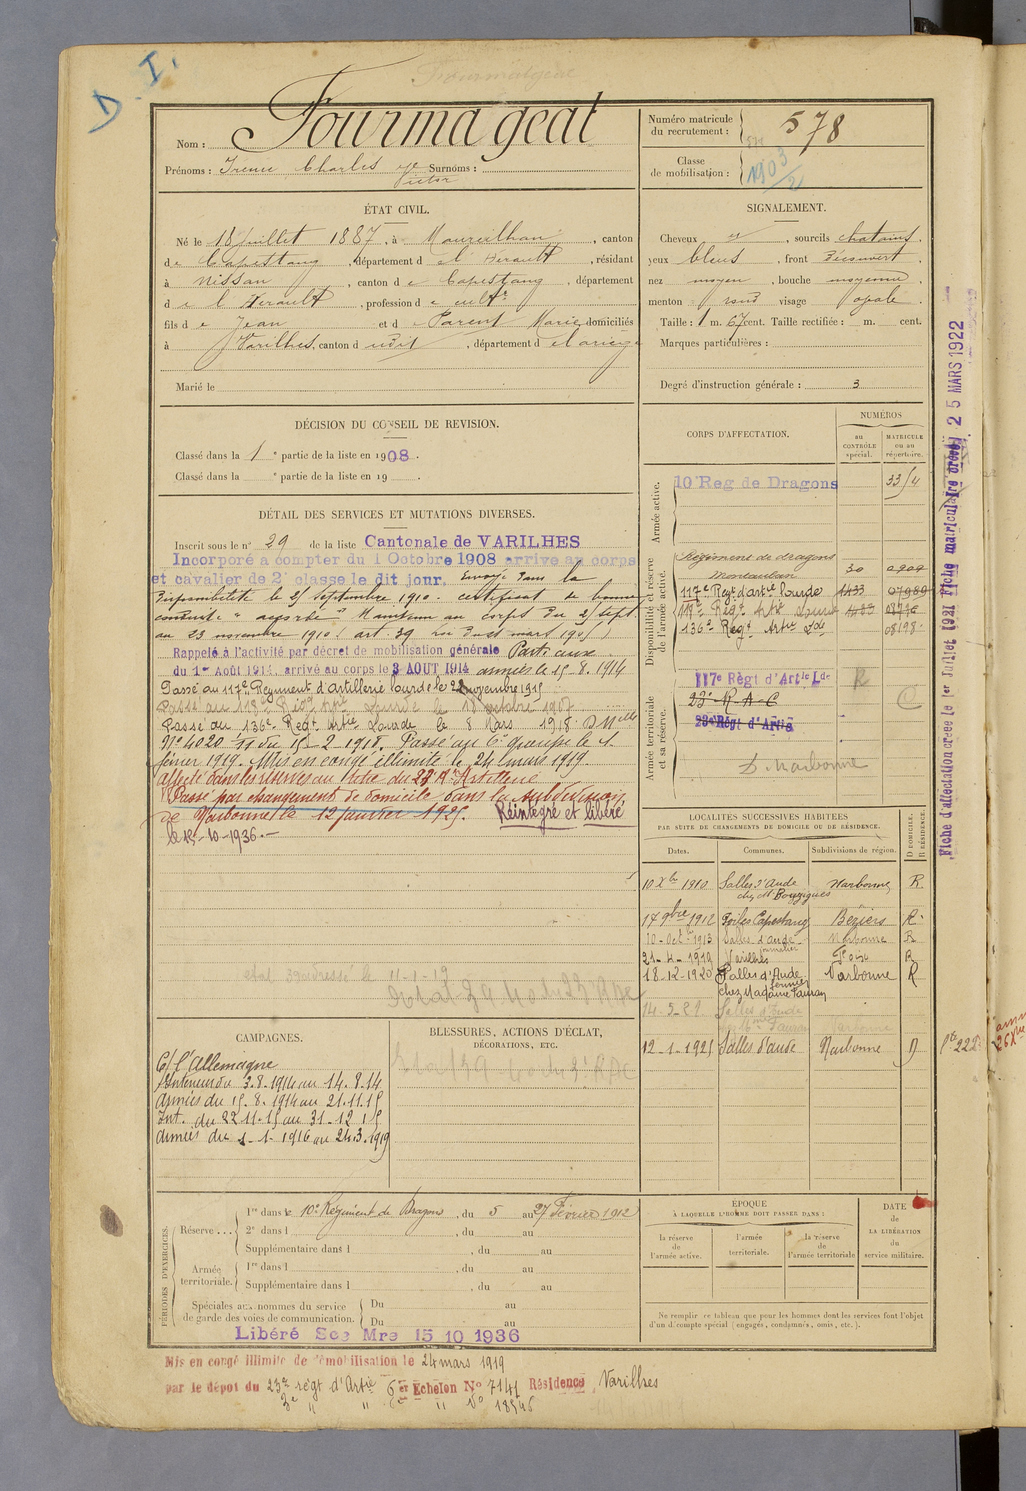 D. I.
Nom : Fourmageat
Prénoms : Irénée Charles Victor Surnoms :
Numéro matricule du recrutement : 578
Classe de mobilisation : 1903/2
ÉTAT CIVIL.
Né le 18 juillet 1887, à Maureilhan, canton
de Capestang, département de l'Herault, résidant
à Nissan, canton de Capestang, département
de l'Herault, profession de cultr
fils de Jean et de Parent Marie domiciliés
à Varilhes, canton dudit, département de l'ariège
Marié le
SIGNALEMENT.
Cheveux et, sourcils chatains,
yeux bleus, front découvert,
nez moyen, bouche moyenne,
menton rond visage opale.
Taille : 1 m. 67 cent. Taille rectifiée : m. cent.
Marques particulières :
Degré d'instruction générale : 3
DÉCISION DU CONSEIL DE REVISION.
Classé dans la 1e partie de la liste en 1908.
Classé dans la e partie de la liste en 19 .
DÉTAIL DES SERVICES ET MUTATIONS DIVERSES.
Inscrit sous le n° 29 de la liste Cantonale de VARILHES
Incorporé à compter du 1 Octobre 1908 arrivé au corps
et cavalier de 2e classe le dit jour. Envoyé dans la
disponibilité le 25 septembre 1910. certificat de bonne
conduite "accordé" Maintenu au corps du 25 sept
au 23 novembre 1910 (art. 39 loi du 21 mars 1905)
Rappelé à l'activité par décret de mobilisation générale Parti aux
du 1er Août 1914. arrivé au corps le 3 AOUT 1914 armées le 15-8.1914
Passé au 117e Régiment d'artillerie lourde le 22 novembre 1915
Passé au 118e Régt Artie Lourde le 18 octobre 1917
Passé au 136e Régt Artie Lourde le 8 Mars 1918. D. Melle
N° 4020 11 du 15-2 1918. Passé au 6e groupe le 1
février 1919. Mis en congé illimité le 24 mars 1919
affecté dans les réserves au 23e d'Artillerie
Passé par changement de domicile dans la subdivision
de Narbonne le 12 janvier 1925. Réintégré et libéré
le 15-10-1936.-
CORPS D'AFFECTATION.
NUMÉROS
au CONTRÔLE spécial.
MATRICULE ou au répertoire.
Armée active.
10e Reg de Dragons
Disponibilité et réserve de l'armée active.
Régiment de dragons Montauban 30 0909
117e Régt d'artie lourde 4433 07989
118e Régt Artie Lourde 4483
136e Régt Artie Lde 08198
Armée territoriale et sa réserve.
117e Règt d'Artie Lde R
23e R.A.C C
23e Régt d'Artie
D. Narbonne
Fiche d'affectation créée le 1er Juillet 1921 Fiche matriculaire créée 25 MARS 1922
LOCALITÉS SUCCESSIVES HABITÉES
PAR SUITE DE CHANGEMENTS DE DOMICILE OU DE RÉSIDENCE.
Dates. Communes. Subdivisions de région. D DOMICILE. R RÉSIDENCE.
10 Xbre 1910 Salles d'Aude chez Mr Bouzigues Narbonne R
17 9bre 1912 Poilhes Capestang Béziers R
10-Octe 1913 Salles d'aude Narbonne R
21-4-1919 Varilhes Foix R
18-12-1920 Salles d'Aude chez Madame Tauran Narbonne R
14-5-21 Salles d'Aude
12-1-1925 Salles d'aude Narbonne D
CAMPAGNES.
C/ l'Allemagne
Intérieur du 3.8.1914 au 14.8.14
Armées du 15.8.1914 au 21.11.15
Int. du 22.11.15 au 31-12 15
Armées du 1-1-1916 au 24.3.1919
BLESSURES, ACTIONS D'ÉCLAT,
DÉCORATIONS, ETC.
PÉRIODES D'EXERCICES.
Réserve ... 1re dans le 10e Régiment de Dragons, du 5 au 27 Février 1912
2e dans l , du au
Supplémentaire dans l , du au
Armée territoriale. 1re dans l , du au
Supplémentaire dans l , du au
Spéciales aux hommes du service de garde des voies de communication. Du au
Du au
Libéré Sce Mre 15 10 1936
ÉPOQUE
À LAQUELLE L'HOMME DOIT PASSER DANS :
la réserve de l'armée active.
l'armée territoriale.
la réserve de l'armée territoriale
DATE DE LA LIBÉRATION du service militaire.
Ne remplir ce tableau que pour les hommes dont les services font l'objet
d'un décompte spécial (engagés, condamnés, omis, etc.).
Mis en congé illimité de démobilisation le 24 mars 1919
par le dépôt du 23e régt d'Artie 6er Echelon N° 7141 Résidence Varilhes
N° 18546